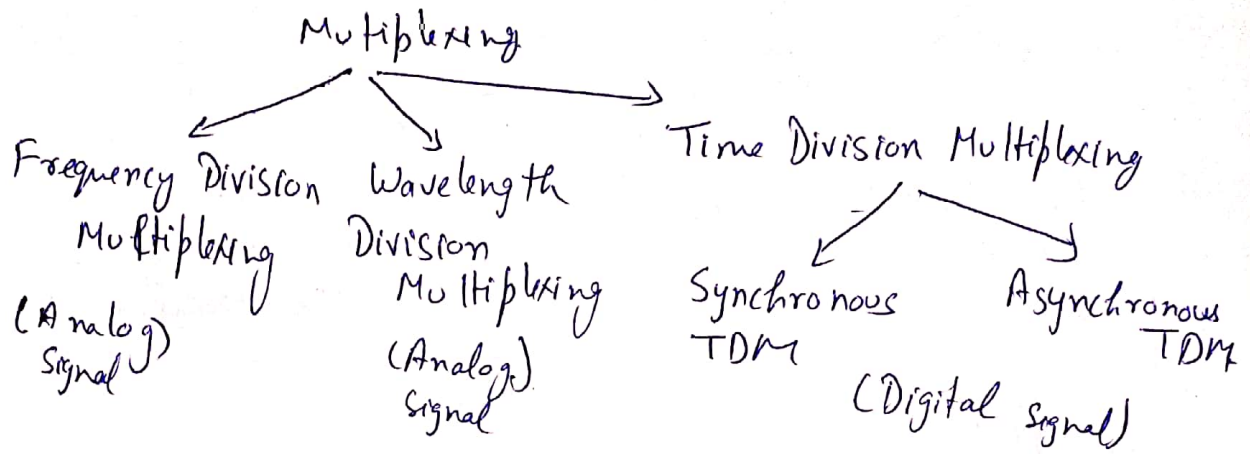 Mutiplexing
Frequency Division
Multiplexing
(Analog)
Signal
Wavelength
Division
Multiplexing
(Analog)
Signal
Time Division Multiplexing
Synchronous
TDM
Asynchronous
TDM
(Digital Signal)